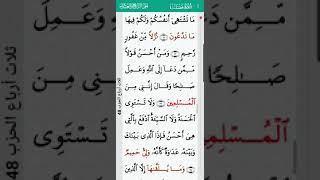 مَا تَشْتَهِىٓ أَنفُسُكُمْ وَلَكُمْ فِيهَا
مَا تَدَّعُونَ ٣١ نُزُلًا مِّنْ غَفُورٍ
رَّحِيمٍ ٣٢ وَمَنْ أَحْسَنُ قَوْلًا
مِّمَّن دَعَآ إِلَى ٱللَّهِ وَعَمِلَ
صَـٰلِحًا وَقَالَ إِنَّنِى مِنَ
ٱلْمُسْلِمِينَ ٣٣ وَلَا تَسْتَوِى
ٱلْحَسَنَةُ وَلَا ٱلسَّيِّئَةُ ٱدْفَعْ بِٱلَّتِى
هِىَ أَحْسَنُ فَإِذَا ٱلَّذِى بَيْنَكَ
وَبَيْنَهُۥ عَدَٰوَةٌ كَأَنَّهُۥ وَلِىٌّ حَمِيمٌ ٣٤
وَمَا يُلَقَّىٰهَآ إِلَّا ٱلَّذِينَ
ثلاث أرباع الحزب 48